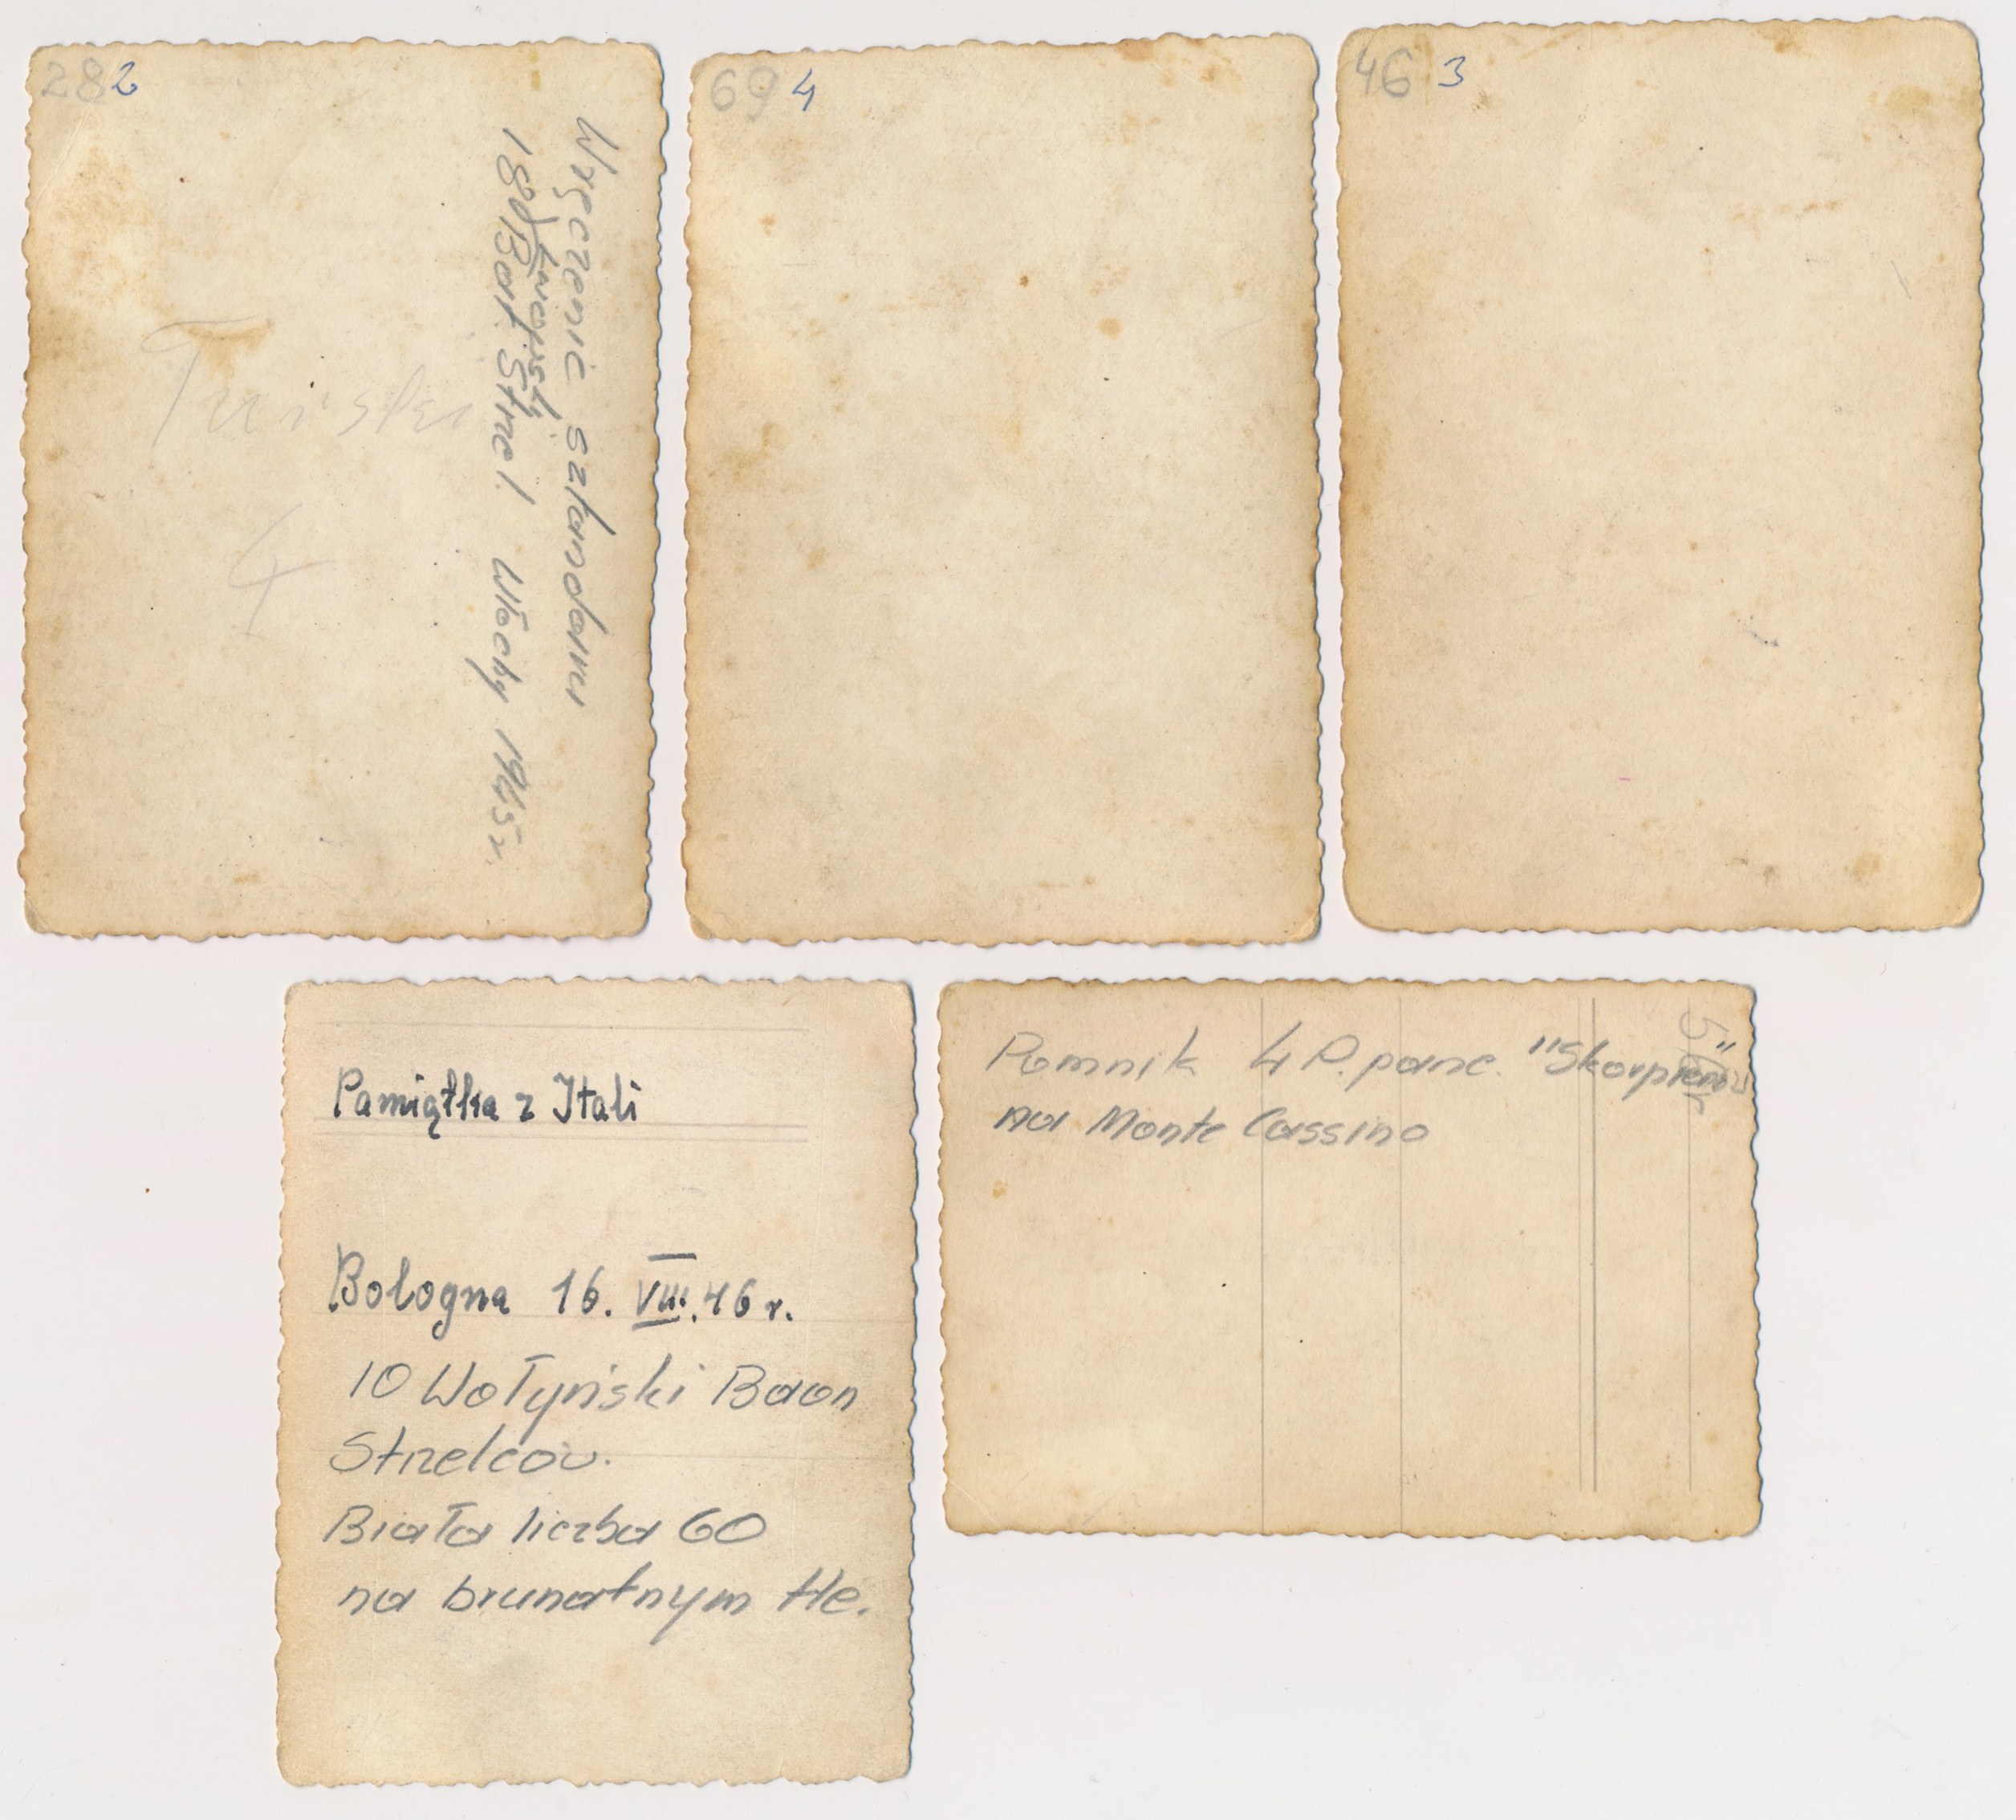 28 2
Wręczenie sztandaru
Lwowski
18 Bat. Strzel. Włochy 1945 r.
4
69 4
46 3
Pamiątka z Itali
Bologna 16. VIII. 46 r.
10 Wołyński Baon
Strzelców.
Biała liczba 60
na brunatnym tle.
Pomnik 4 P. panc. "Skorpion"
na Monte Cassino